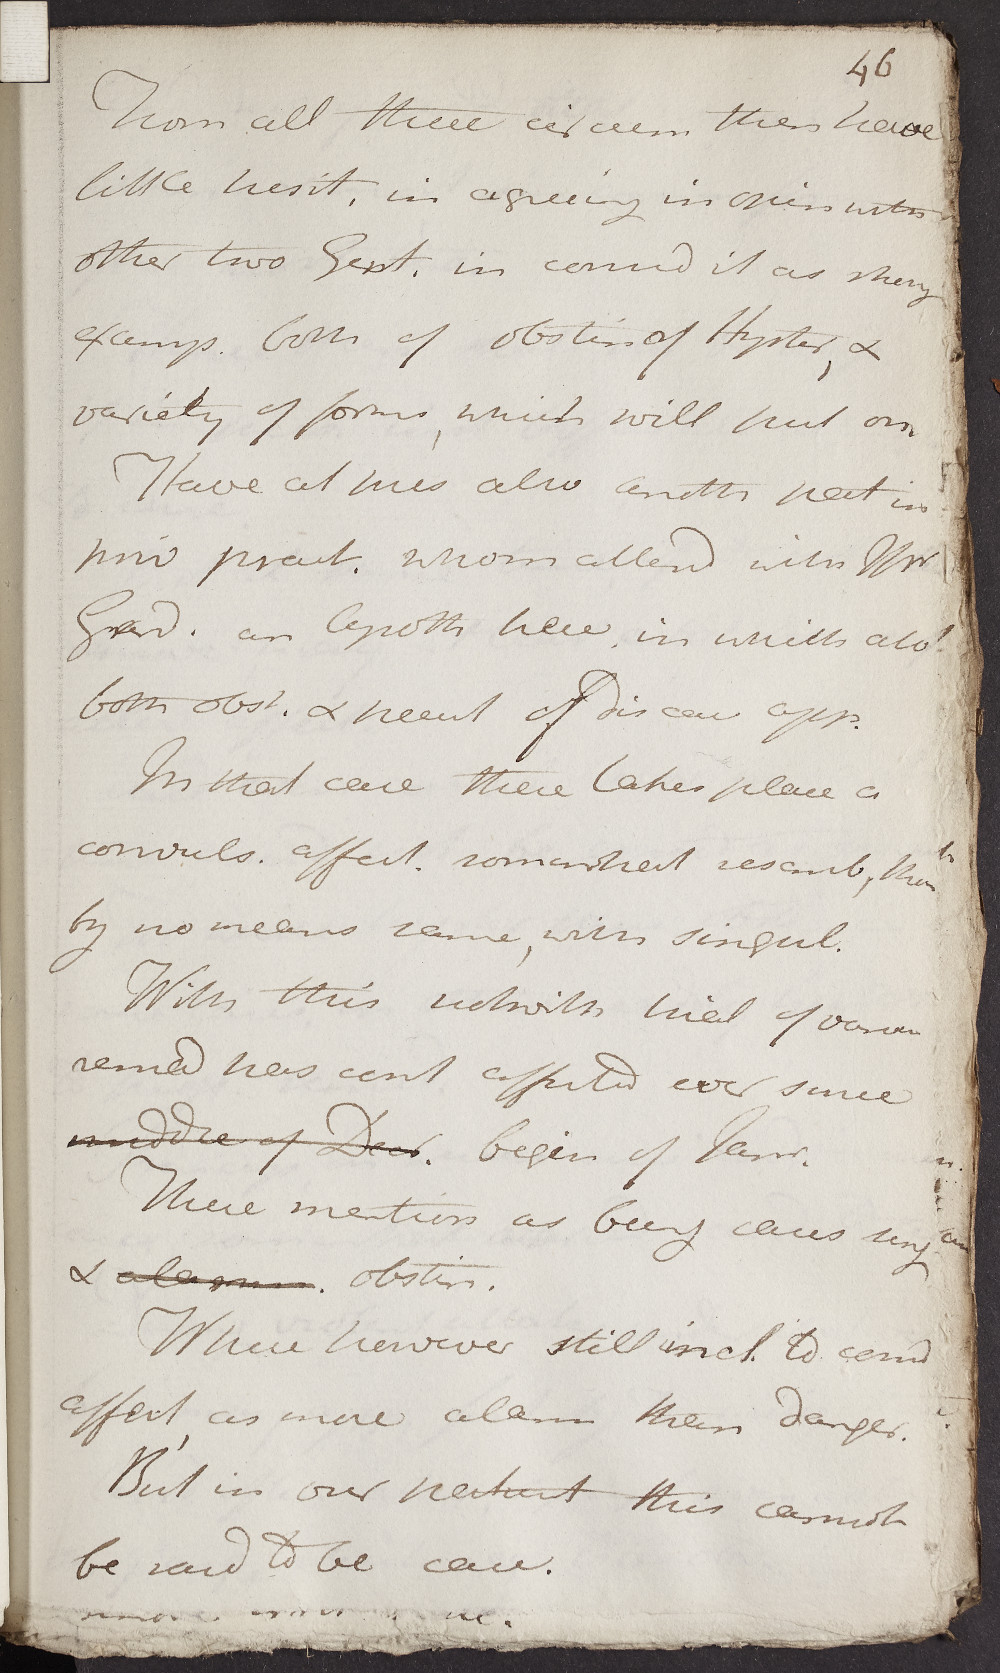 46
From all these circum then have
little hesit. in agreeing in opin with
other two Gent. in consid it as strong
examp. both of obstin of Hyster, &
variety of forms, which will put on
Have at pres also anoth pat in
priv pract. whom attend with Mr
Gard. an Apoth here, in which also
both obst. & pecul of Disease app.
In that case there takes place a
convuls. affect. somewhat resemb, tho
by no means same, with singul.
With this notwith trial of various
remed has cont affected ever since
middle of Decr. begin of Janr.
These mention as being cases sing
& alarm. obstin.
Where however still incl. to consid
affect, as more alarm than danger.
But in our patient this cannot
be said to be case.